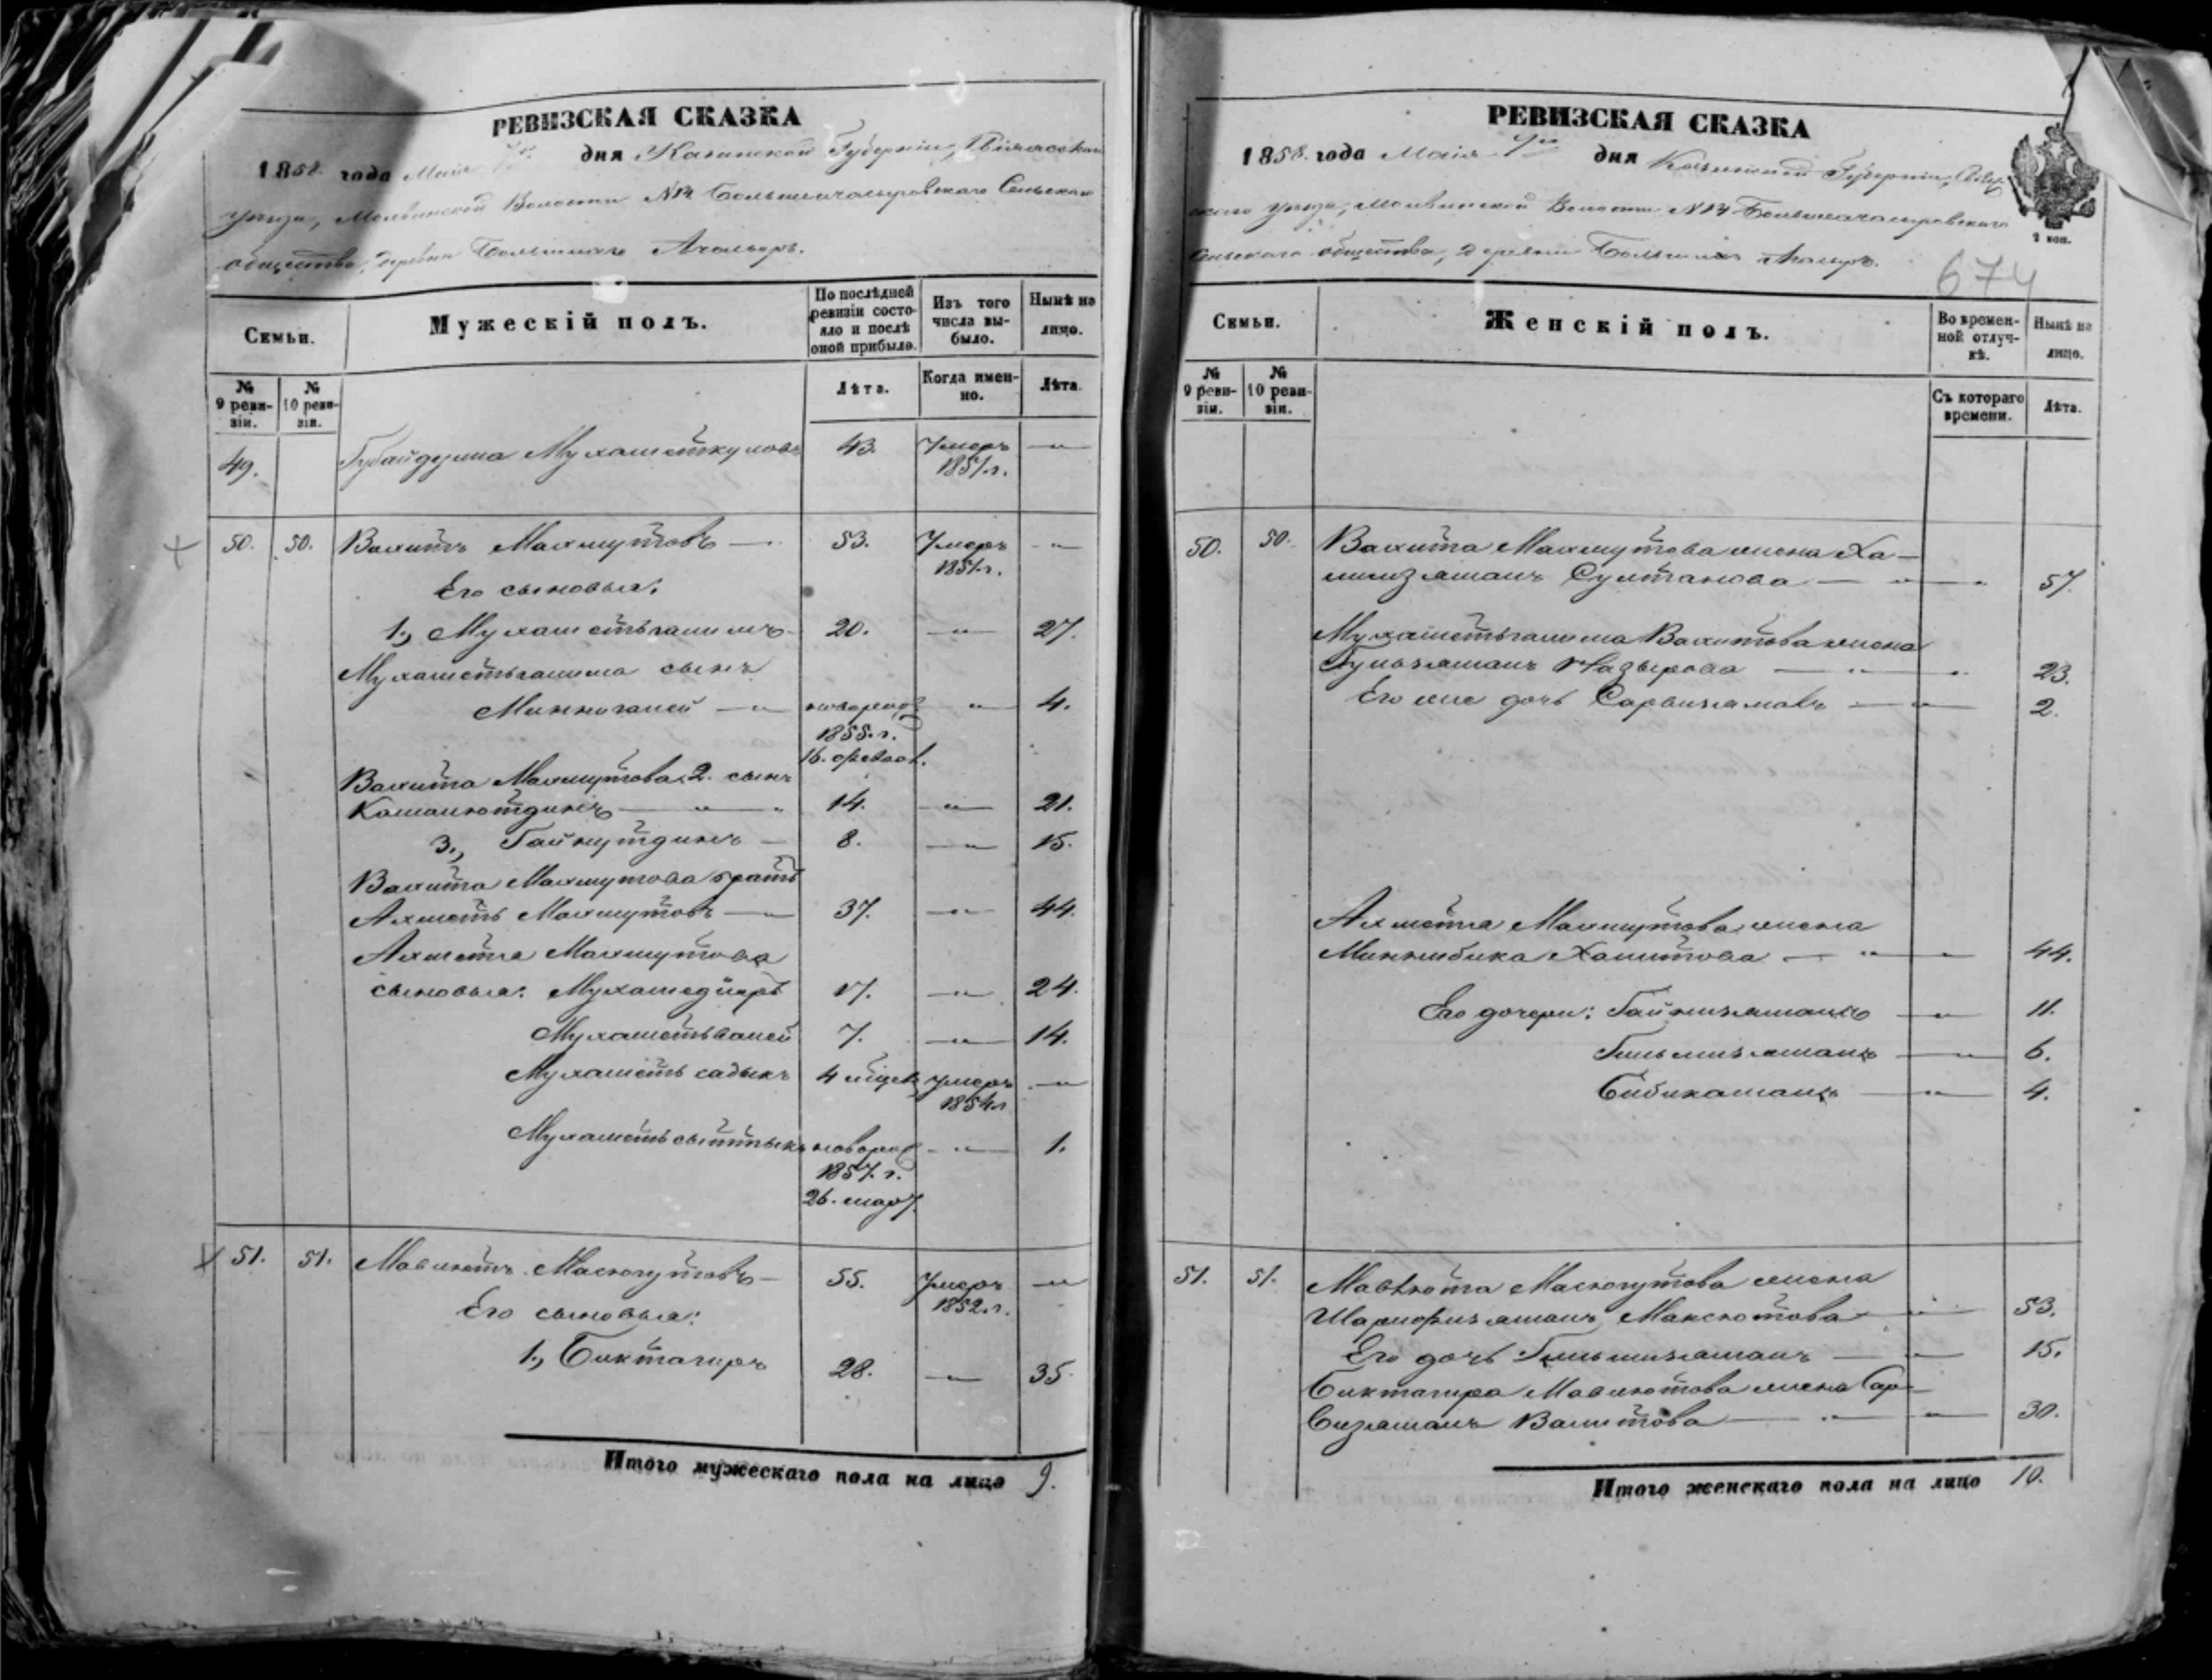 РЕВИЗСКАЯ СКАЗКА
1858 года Маія 7го дня Казанской Губерніи, Свіяжскаго
уезда, Молвинской Волости №14 Большеачасыровскаго Сельскаго
общества, деревни Большихъ Ачасыръ.
Семьи.
Мужескій полъ.
По послѣдней ревизіи состояло и послѣ оной прибыло.
Изъ того числа выбыло.
Нынѣ на лицо.
№ 9 ревизіи.
№ 10 ревизіи.
Лѣта.
Когда именно.
Лѣта.
49. Губайдулла Мухаметкуловъ 43. Умеръ —"—
1851 г.
50. 50. Вахитъ Махмутовъ — 53. Умеръ —"—
1851 г.
Его сыновья:
1., Мухаметьгалимъ 20. —"— 27.
Мухаметьгалима сынъ
Миннигалей —"— новорожд —"— 4.
1855. г.
16. феврал.
Вахита Махмутова 2. сынъ
Камалютдинъ —"—" 14. —"— 21.
3., Гайнутдинъ — 8. —"— 15.
Вахита Махмутова братъ
Ахметъ Махмутовъ —"— 37. —"— 44.
Ахметя Махмутова
сыновья: Мухамедіяръ 17. —"— 24.
Мухаметьвалей 7. —"— 14.
Мухаметь садыкъ 4 мѣсец умеръ —"—
1854 г
Мухаметьсыттыкъ новорож —"— 1.
1857. г.
26. март.
51. 51. Мавлютъ Масогутовъ — 55. Умеръ —"—
1852. г.
Его сыновья:
1., Биктагиръ 28. —"— 35.
Итого мужескаго пола на лицо 9.
РЕВИЗСКАЯ СКАЗКА
1858. года Маія 7го дня Казанской Губерніи, Свіяж
скаго уезда, Молвинской Волости №14 Большеачасыровскаго
Сельскаго общества, деревни Большихъ Ачасыръ.
2 коп.
674
Семьи.
Женскій полъ.
Во временной отлучкѣ.
Нынѣ на лицо.
№ 9 ревизіи.
№ 10 ревизіи.
Съ котораго времени.
Лѣта.
50. 50. Вахита Махмутова жена Ха-
Султанова —"—" 57.
Мухаметьгалима Вахитова жена
Гульзямалъ Назырова —"—" 23.
Его же дочь —"— 2.
Ахметя Махмутова жена
Миннибика Хамитова —"—"— 44.
Его дочери: Гайнизямалъ —"— 11.
Гильмизямалъ —"— 6.
Бибикамалъ —"— 4.
51. 51. Мавлюта Масогутова жена
Шарифизямалъ Максютова —"— 53.
Его дочь Гильмизямалъ —"— 15.
Биктагира Мавлютова жена Сар-
визямалъ Валитова —"—"— 30.
Итого женскаго пола на лицо 10.